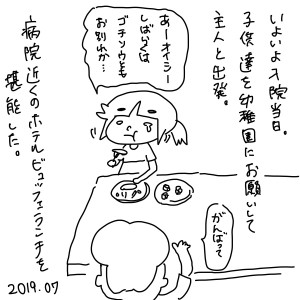 いよいよ入院当日。
子供達を幼稚園にお願いして
主人と出発。
あーオイシー
しばらくは
ゴチソウとも
お別れか…
がんばって
病院近くのホテルビュッフェランチを
堪能した。
2019.07